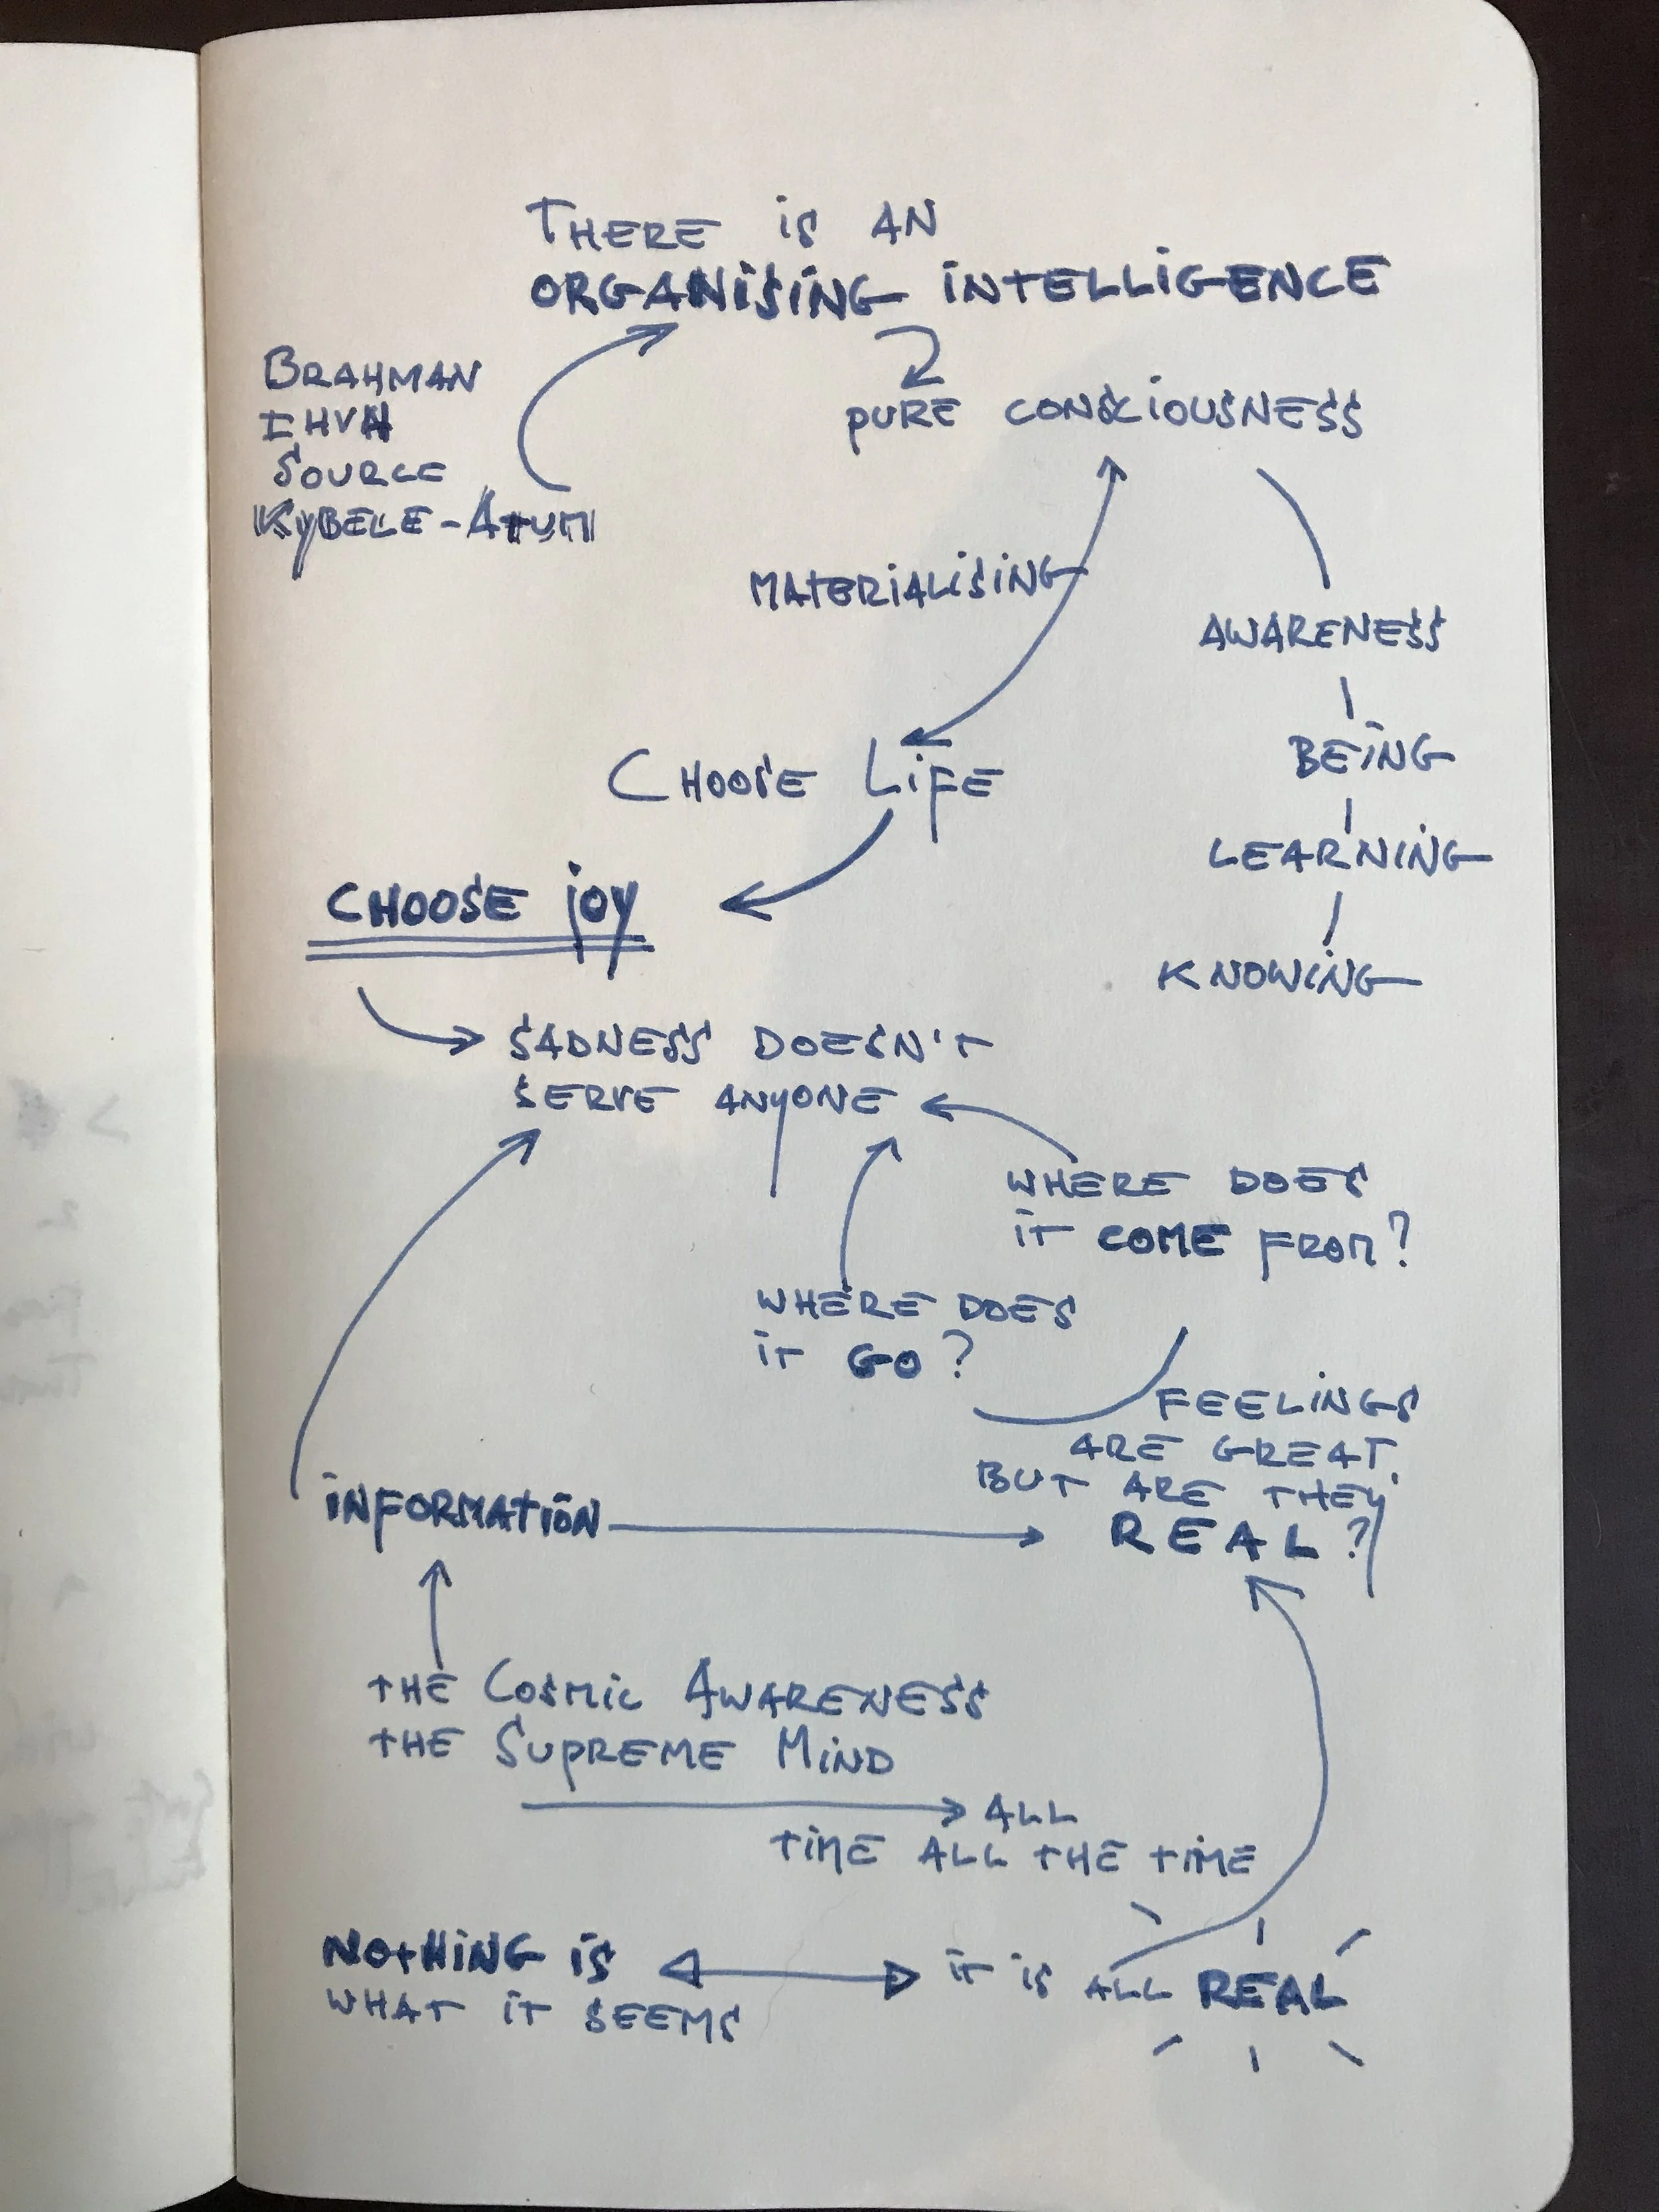 THERE IS AN
ORGANISING INTELLIGENCE
BRAHMAN
IHVH
SOURCE
KYBELE-ATUM
PURE CONSCIOUSNESS
MATERIALISING
AWARENESS
BEING
LEARNING
KNOWING
CHOOSE LIFE
CHOOSE JOY
SADNESS DOESN'T
SERVE ANYONE
WHERE DOES
IT COME FROM?
WHERE DOES
IT GO?
FEELINGS
ARE GREAT,
BUT ARE THEY
REAL?
INFORMATION
THE COSMIC AWARENESS
THE SUPREME MIND
ALL
TIME ALL THE TIME
NOTHING IS
WHAT IT SEEMS
IT IS ALL REAL